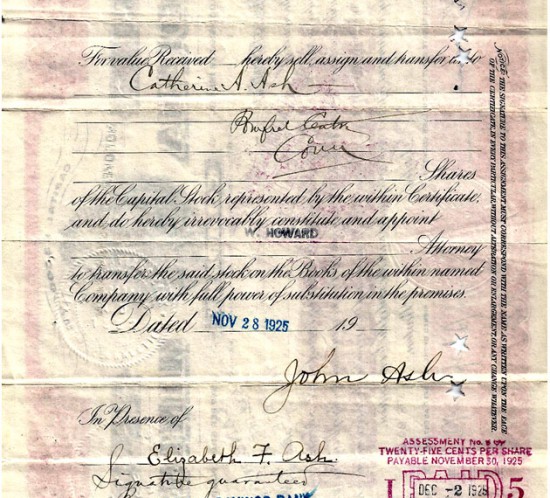 For value Received hereby sell, assign and transfer unto
Catherine A. Ash
Pomfret Center
Conn
Shares
of the Capital Stock, represented by the within Certificate,
and do hereby irrevocably constitute and appoint
W. HOWARD
Attorney
to transfer the said stock on the Books of the within named
Company with full power of substitution in the premises.
Dated NOV 28 1925 19
John Ash
In Presence of
Elizabeth F. Ash
Signature guaranteed
BANK
NOTICE THE SIGNATURE TO THIS ASSIGNMENT MUST CORRESPOND WITH THE NAME AS WRITTEN UPON THE FACE
OF THE CERTIFICATE, IN EVERY PARTICULAR, WITHOUT ALTERATION OR ENLARGEMENT, OR ANY CHANGE WHATEVER.
ASSESSMENT No.
TWENTY-FIVE CENTS PER SHARE
PAYABLE NOVEMBER 30, 1925
PAID
DEC -2 1925